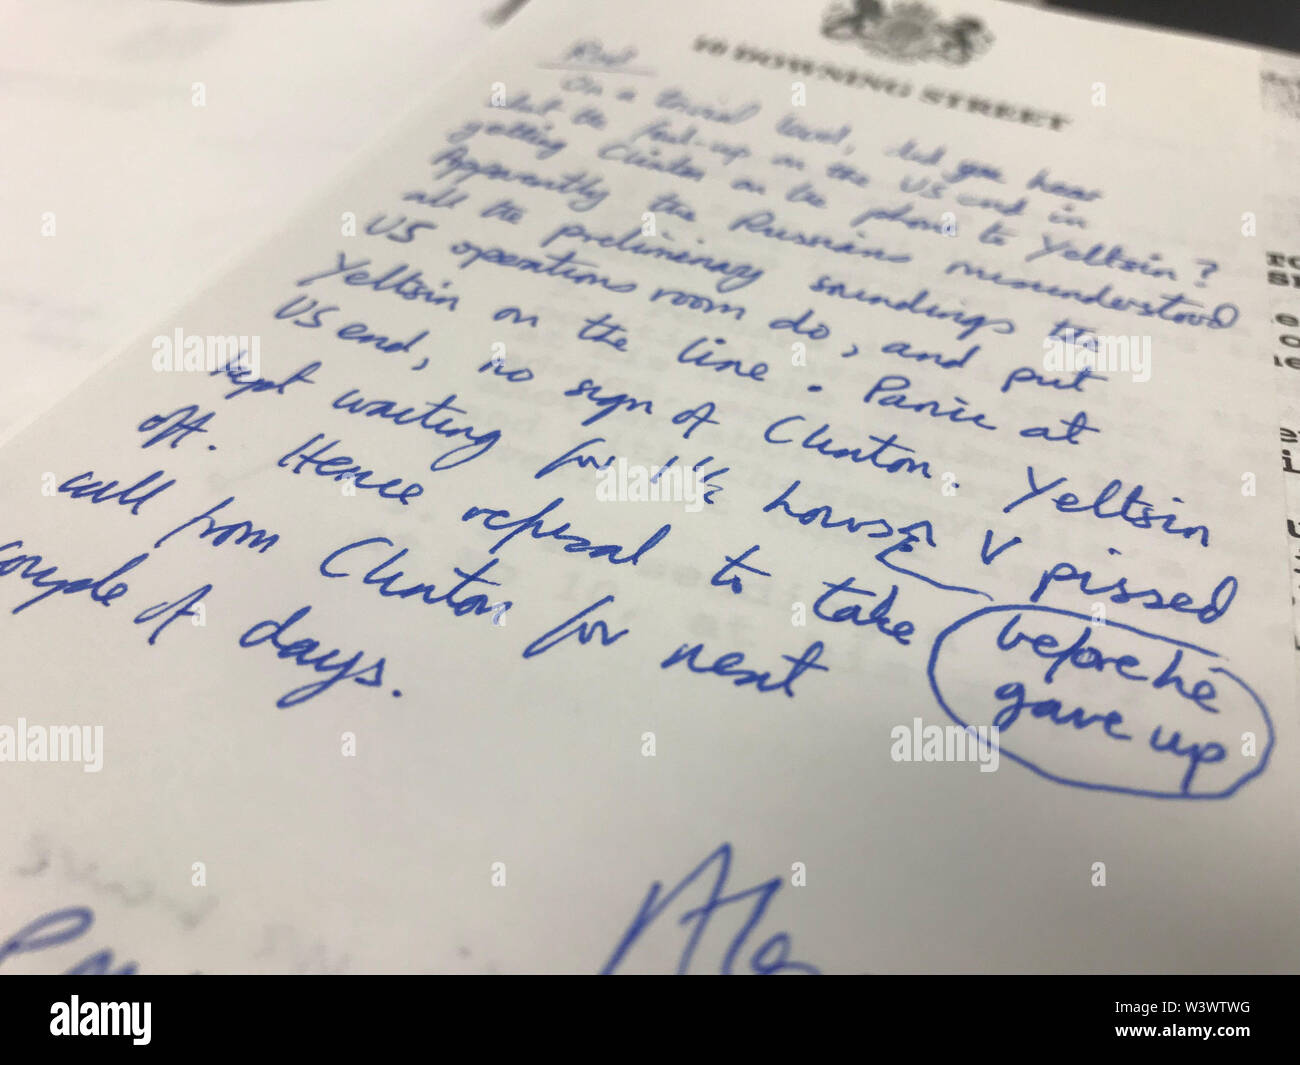 10 DOWNING STREET
Rod
On a trivial level, did you hear
about the foul-up on the US end in
getting Clinton on the phone to Yeltsin?
Apparently the Russians misunderstood
all the preliminary soundings the
US operations room do, and put
Yeltsin on the line. Panic at
US end, no sign of Clinton. Yeltsin
kept waiting for 1½ hours V pissed
before he
gave up
off. Hence refusal to take
call from Clinton for next
couple of days.
alamy
a
W3WTWG
www.alamy.com